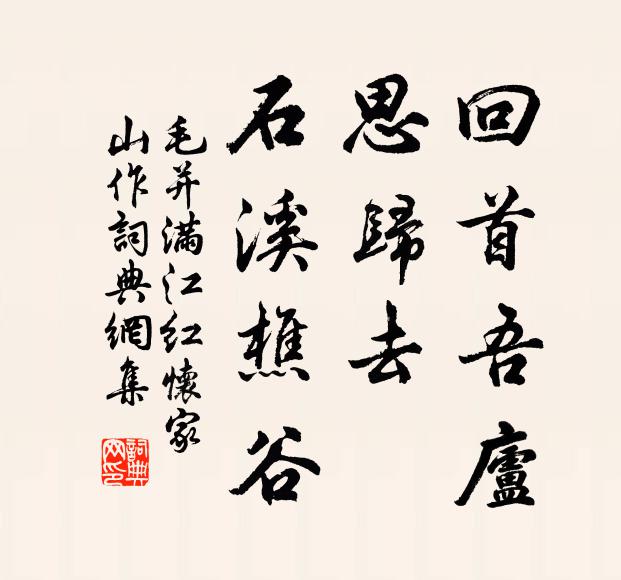 回首吾廬
思歸去
石溪樵谷
毛并滿江红懷家
山作詞典網集
詞典網印